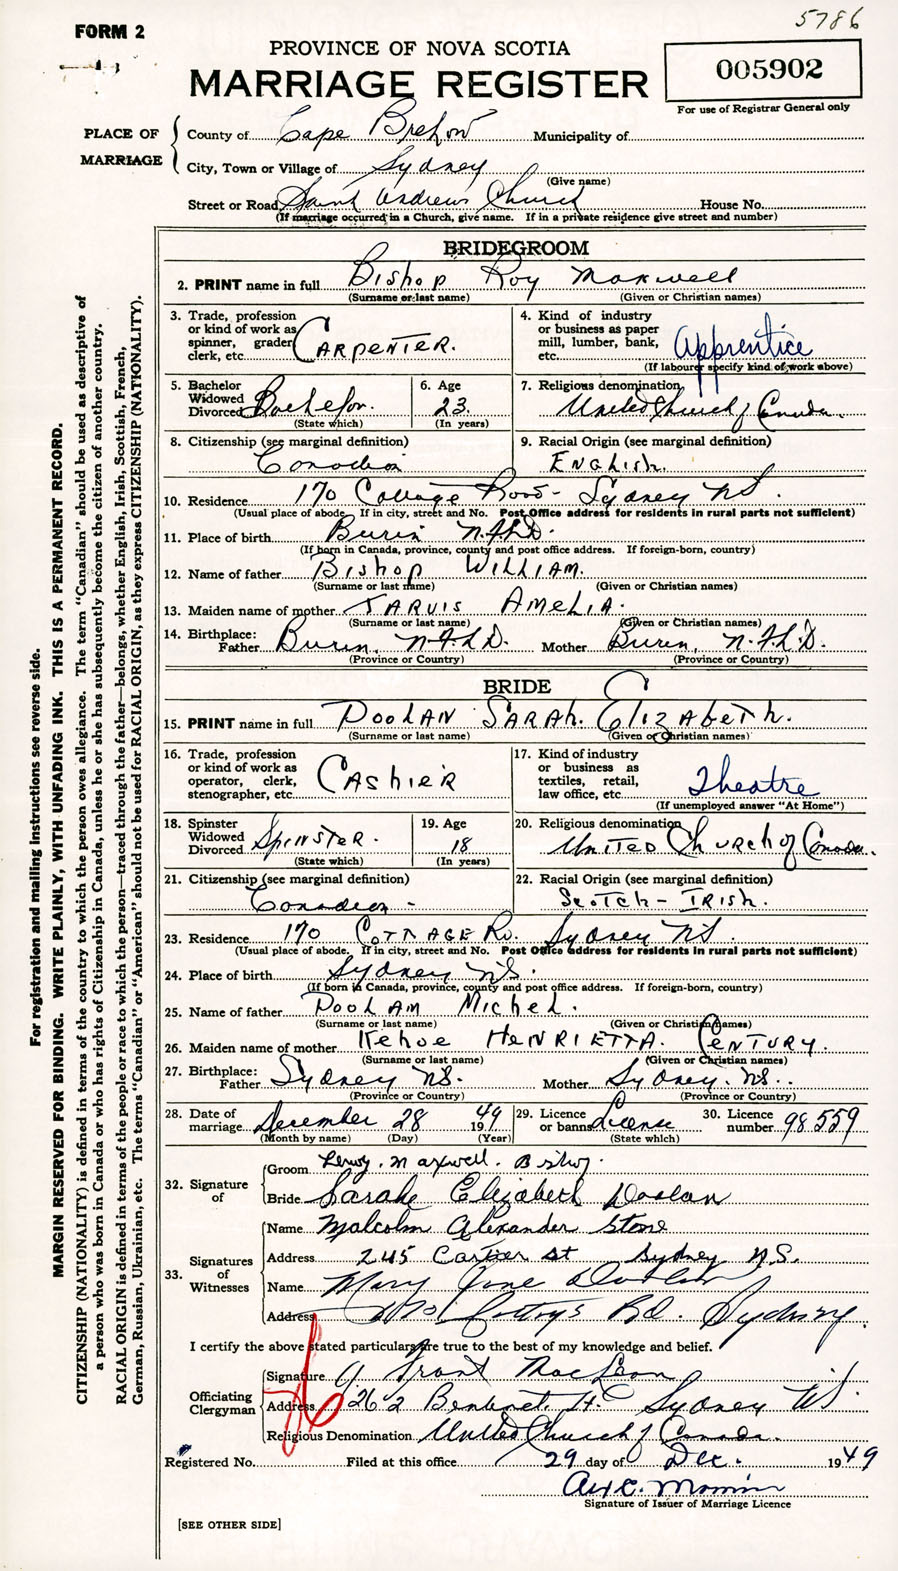 5786
FORM 2
PROVINCE OF NOVA SCOTIA
MARRIAGE REGISTER
005902
For use of Registrar General only
PLACE OF MARRIAGE
County of Cape Breton Municipality of
City, Town or Village of Sydney
(Give name)
Street or Road Saint Andrews Church House No.
(If marriage occurred in a Church, give name. If in a private residence give street and number)
BRIDEGROOM
2. PRINT name in full Bishop Roy Maxwell
(Surname or last name) (Given or Christian names)
3. Trade, profession or kind of work as spinner, grader clerk, etc. CARPENTER.
4. Kind of industry or business as paper mill, lumber, bank, etc. Apprentice
(If labourer specify kind of work above)
5. Bachelor Widowed Divorced Bachelor.
(State which)
6. Age 23.
(In years)
7. Religious denomination United Church of Canada.
8. Citizenship (see marginal definition) Canadian
9. Racial Origin (see marginal definition) ENGLISH.
10. Residence 170 Cottage Road - Sydney NS.
(Usual place of abode. If in city, street and No. Post Office address for residents in rural parts not sufficient)
11. Place of birth Burin NFLD.
(If born in Canada, province, county and post office address. If foreign-born, country)
12. Name of father Bishop WILLIAM.
(Surname or last name) (Given or Christian names)
13. Maiden name of mother JARVIS AMELIA.
(Surname or last name) (Given or Christian names)
14. Birthplace: Father Burin, NFLD. Mother Burin, NFLD.
(Province or Country) (Province or Country)
BRIDE
15. PRINT name in full DOOLAN SARAH. ELIZABETH.
(Surname or last name) (Given or Christian names)
16. Trade, profession or kind of work as operator, clerk, stenographer, etc. CASHIER
17. Kind of industry or business as textiles, retail, law office, etc. Theatre
(If unemployed answer "At Home")
18. Spinster Widowed Divorced SPINSTER.
(State which)
19. Age 18
(In years)
20. Religious denomination UNITED CHURCH of Canada.
21. Citizenship (see marginal definition) Canadian -
22. Racial Origin (see marginal definition) SCOTCH - IRISH.
23. Residence 170 COTTAGE RD. Sydney NS.
(Usual place of abode. If in city, street and No. Post Office address for residents in rural parts not sufficient)
24. Place of birth Sydney NS.
(If born in Canada, province, county and post office address. If foreign-born, country)
25. Name of father DOOLAN Michel.
(Surname or last name) (Given or Christian names)
26. Maiden name of mother Kehoe HENRIETTA. CENTURY.
(Surname or last name) (Given or Christian names)
27. Birthplace: Father Sydney NS. Mother Sydney. NS.
(Province or Country) (Province or Country)
28. Date of marriage December 28 1949
(Month by name) (Day) (Year)
29. Licence or banns License
(State which)
30. Licence number 98559
32. Signature of
Groom Maxwell. Bishop.
Bride Sarah Elizabeth Doolan
33. Signatures of Witnesses
Name Malcolm Alexander Stone
Address 245 Cartier St Sydney N.S.
Name Mary Jane Doolan
Address Rd. Sydney
I certify the above stated particulars are true to the best of my knowledge and belief.
Officiating Clergyman
Signature Grant MacLean
Address 262 St. Sydney NS
Religious Denomination United Church of Canada.
Registered No. Filed at this office 29 day of Dec. 1949
Signature of Issuer of Marriage Licence
[SEE OTHER SIDE]
For registration and mailing instructions see reverse side.
MARGIN RESERVED FOR BINDING. WRITE PLAINLY, WITH UNFADING INK. THIS IS A PERMANENT RECORD.
CITIZENSHIP (NATIONALITY) is defined in terms of the country to which the person owes allegiance. The term "Canadian" should be used as descriptive of
a person who was born in Canada or who has rights of Citizenship in Canada, unless he or she has subsequently become the citizen of another country.
RACIAL ORIGIN is defined in terms of the people or race to which the person—traced through the father—belongs, whether English, Irish, Scottish, French,
German, Russian, Ukrainian, etc. The terms "Canadian" or "American" should not be used for RACIAL ORIGIN, as they express CITIZENSHIP (NATIONALITY).